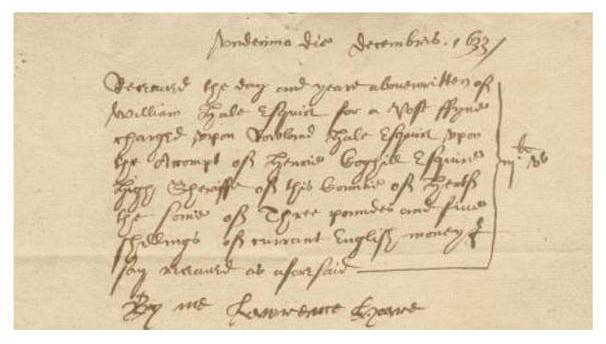 Undecimo die Decembris. 1633
Receaved the day and yeare abovewritten of
William Hale Esquire for a Post ffyne
charged upon Rowland Hale Esquire upon
the Accompt of Henrie Coghill Esquire
high Sheriffe of this Countie of Hertf
the some of Three poundes and five
shillings of current English money
say receaved as aforesaid
By me Lawrence Hoare